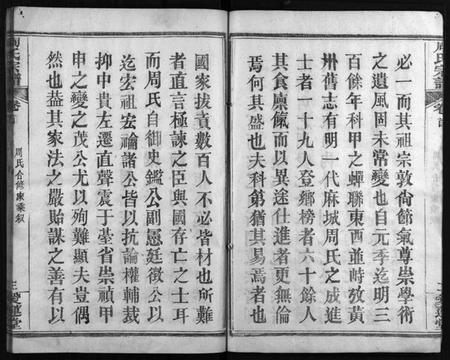 周氏宗譜
卷首
必一而其祖宗敦尚節氣尊崇學術
之遺風固未常變也自元季迄明三
百餘年科甲之蟬聯東西並峙攷黃
州舊志有明一代麻城周氏之成進
士者一十九人登鄉榜者六十餘人
其食廩餼而以異途仕進者更無倫
焉何其盛也夫科第猶其易焉者也
國家拔貢數百人不必皆材也所難
者直言極諫之臣與國存亡之士耳
而周氏自御史鑑公副憲廷徵公以
迄宏祖宏禴諸公皆以抗論權輔裁
抑中貴左遷直聲震于臺省崇禎甲
申之變之茂公尤以殉難顯夫豈偶
然也葢其家法之嚴貽謀之善有以
周氏宗譜
卷首
周氏合修東業敘
三
愛蓮堂